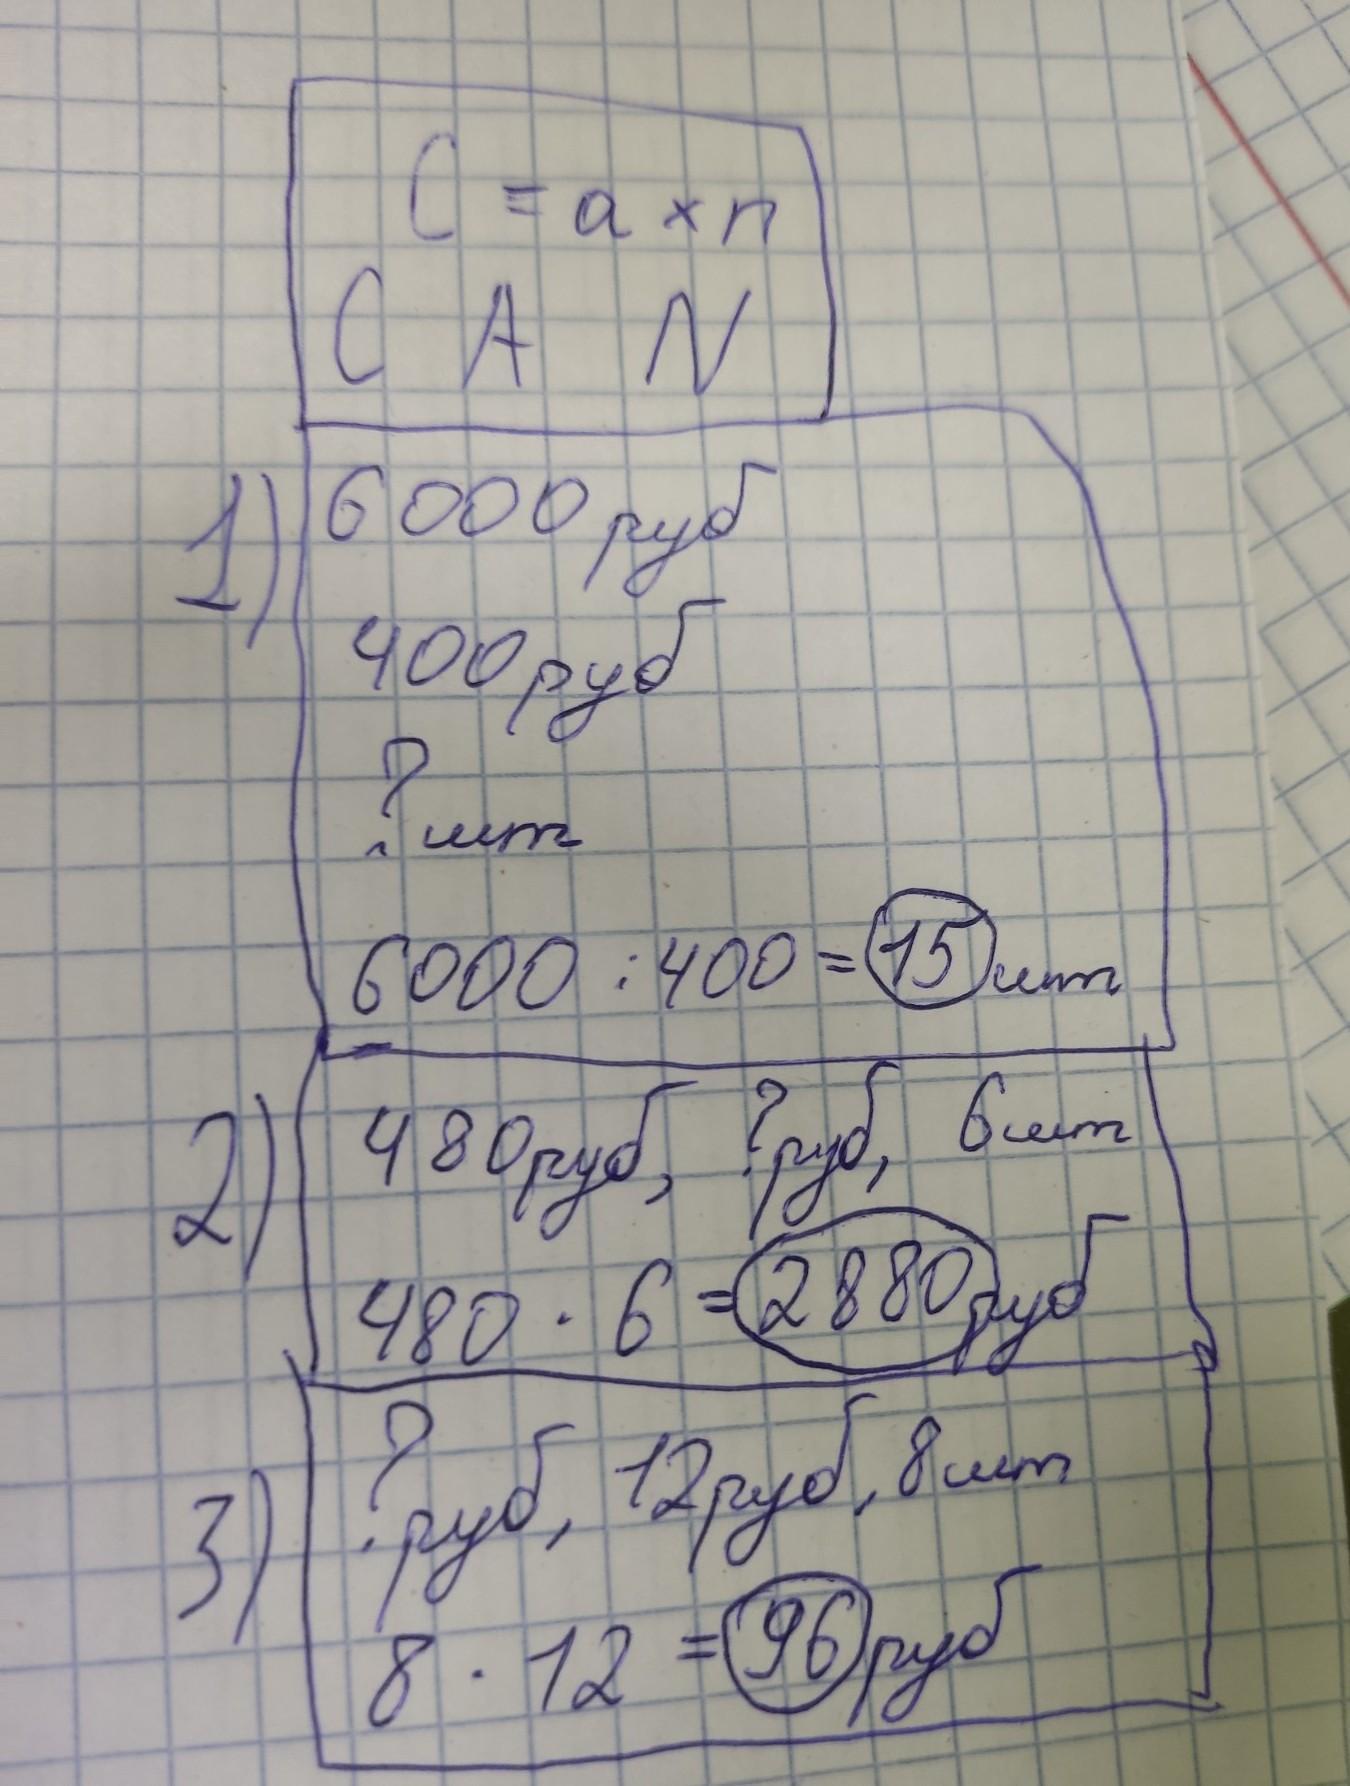 C = a × n
C A N
1) 6000 руб
400 руб
? шт
6000 : 400 = 15 шт
2) 480 руб, ? руб, 6 шт
480 · 6 = 2880 руб
3) ? руб, 12 руб, 8 шт
8 · 12 = 96 руб